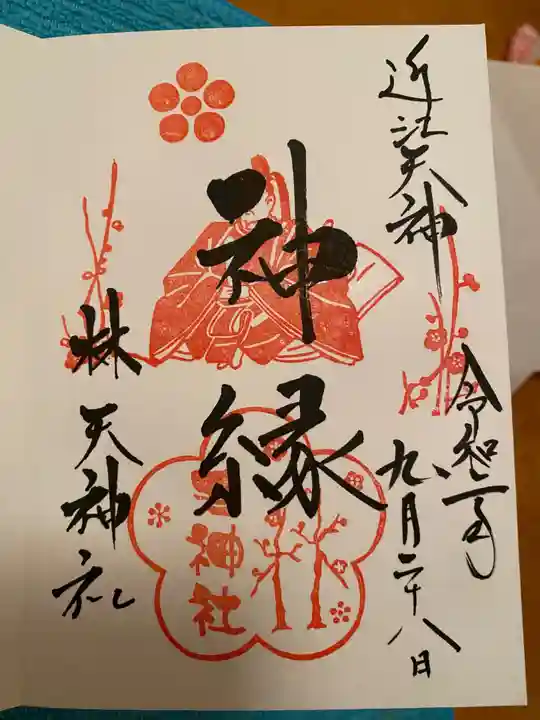 近江天神
令和二年
九月二十八日
神縁
林天神社
神社